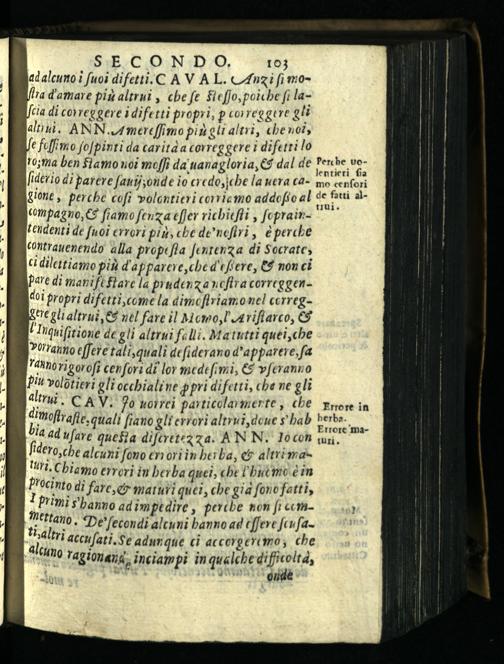 SECONDO. 103
ad alcuno i suoi difetti. CAVAL. Anzi si mo-
stra d'amare più altrui, che se stesso, poiche si la-
scia di correggere i difetti propri, p correggere gli
altrui. ANN. Ameressimo più gli altri, che noi,
se fossimo sospinti da carità a correggere i difetti lo
ro; ma ben siamo noi mossi da uanagloria, & dal de
siderio di parere sauij; onde io credo, che la uera ca-
gione, perche così volontieri corriamo addosso al
compagno, & siamo senza esser richiesti, soprain-
tendenti de suoi errori più, che de'nostri, è perche
contrauenendo alla proposta sentenza di Socrate,
ci dilettiamo più d'apparere, che d'essere, & non ci
pare di manifestare la prudenza nostra correggen-
do i propri difetti, come la dimostriamo nel correg-
gere gli altrui, & nel fare il Momo, l'Aristarco, &
l'Inquisitione de gli altrui falli. Ma tutti quei, che
vorranno essere tali, quali desiderano d'apparere, sa
ranno rigorosi censori di lor medesimi, & vseranno
più volōtieri gli occhiali ne ꝓpri difetti, che ne gli
altrui. CAV. Io uorrei particolarmente, che
dimostraste, quali siano gli errori altrui, doue s'hab
bia ad usare questa discretezza. ANN. Io con
sidero, che alcuni sono errori in herba, & altri ma-
turi. Chiamo errori in herba quei, che l'huomo è in
procinto di fare, & maturi quei, che già sono fatti,
I primi s'hanno ad impedire, perche non si com-
mettano. De'secondi alcuni hanno ad essere scusa-
ti, altri accusati. Se adunque ci accorgeremo, che
alcuno ragionando, inciampi in qualche difficoltà,
onde
Perche uo-
lentieri sia
mo censori
de fatti al-
trui.
Errore in
herba.
Errore ma-
turi.